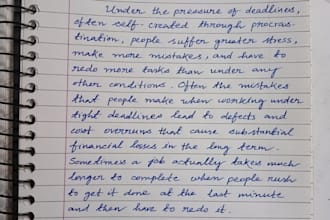 Under the pressure of deadlines,
often self-created through procras-
tination, people suffer greater stress,
make more mistakes, and have to
redo more tasks than under any
other conditions. Often the mistakes
that people make when working under
tight deadlines lead to defects and
cost overruns that cause substantial
financial losses in the long term.
Sometimes a job actually takes much
longer to complete when people rush
to get it done at the last minute
and then have to redo it.